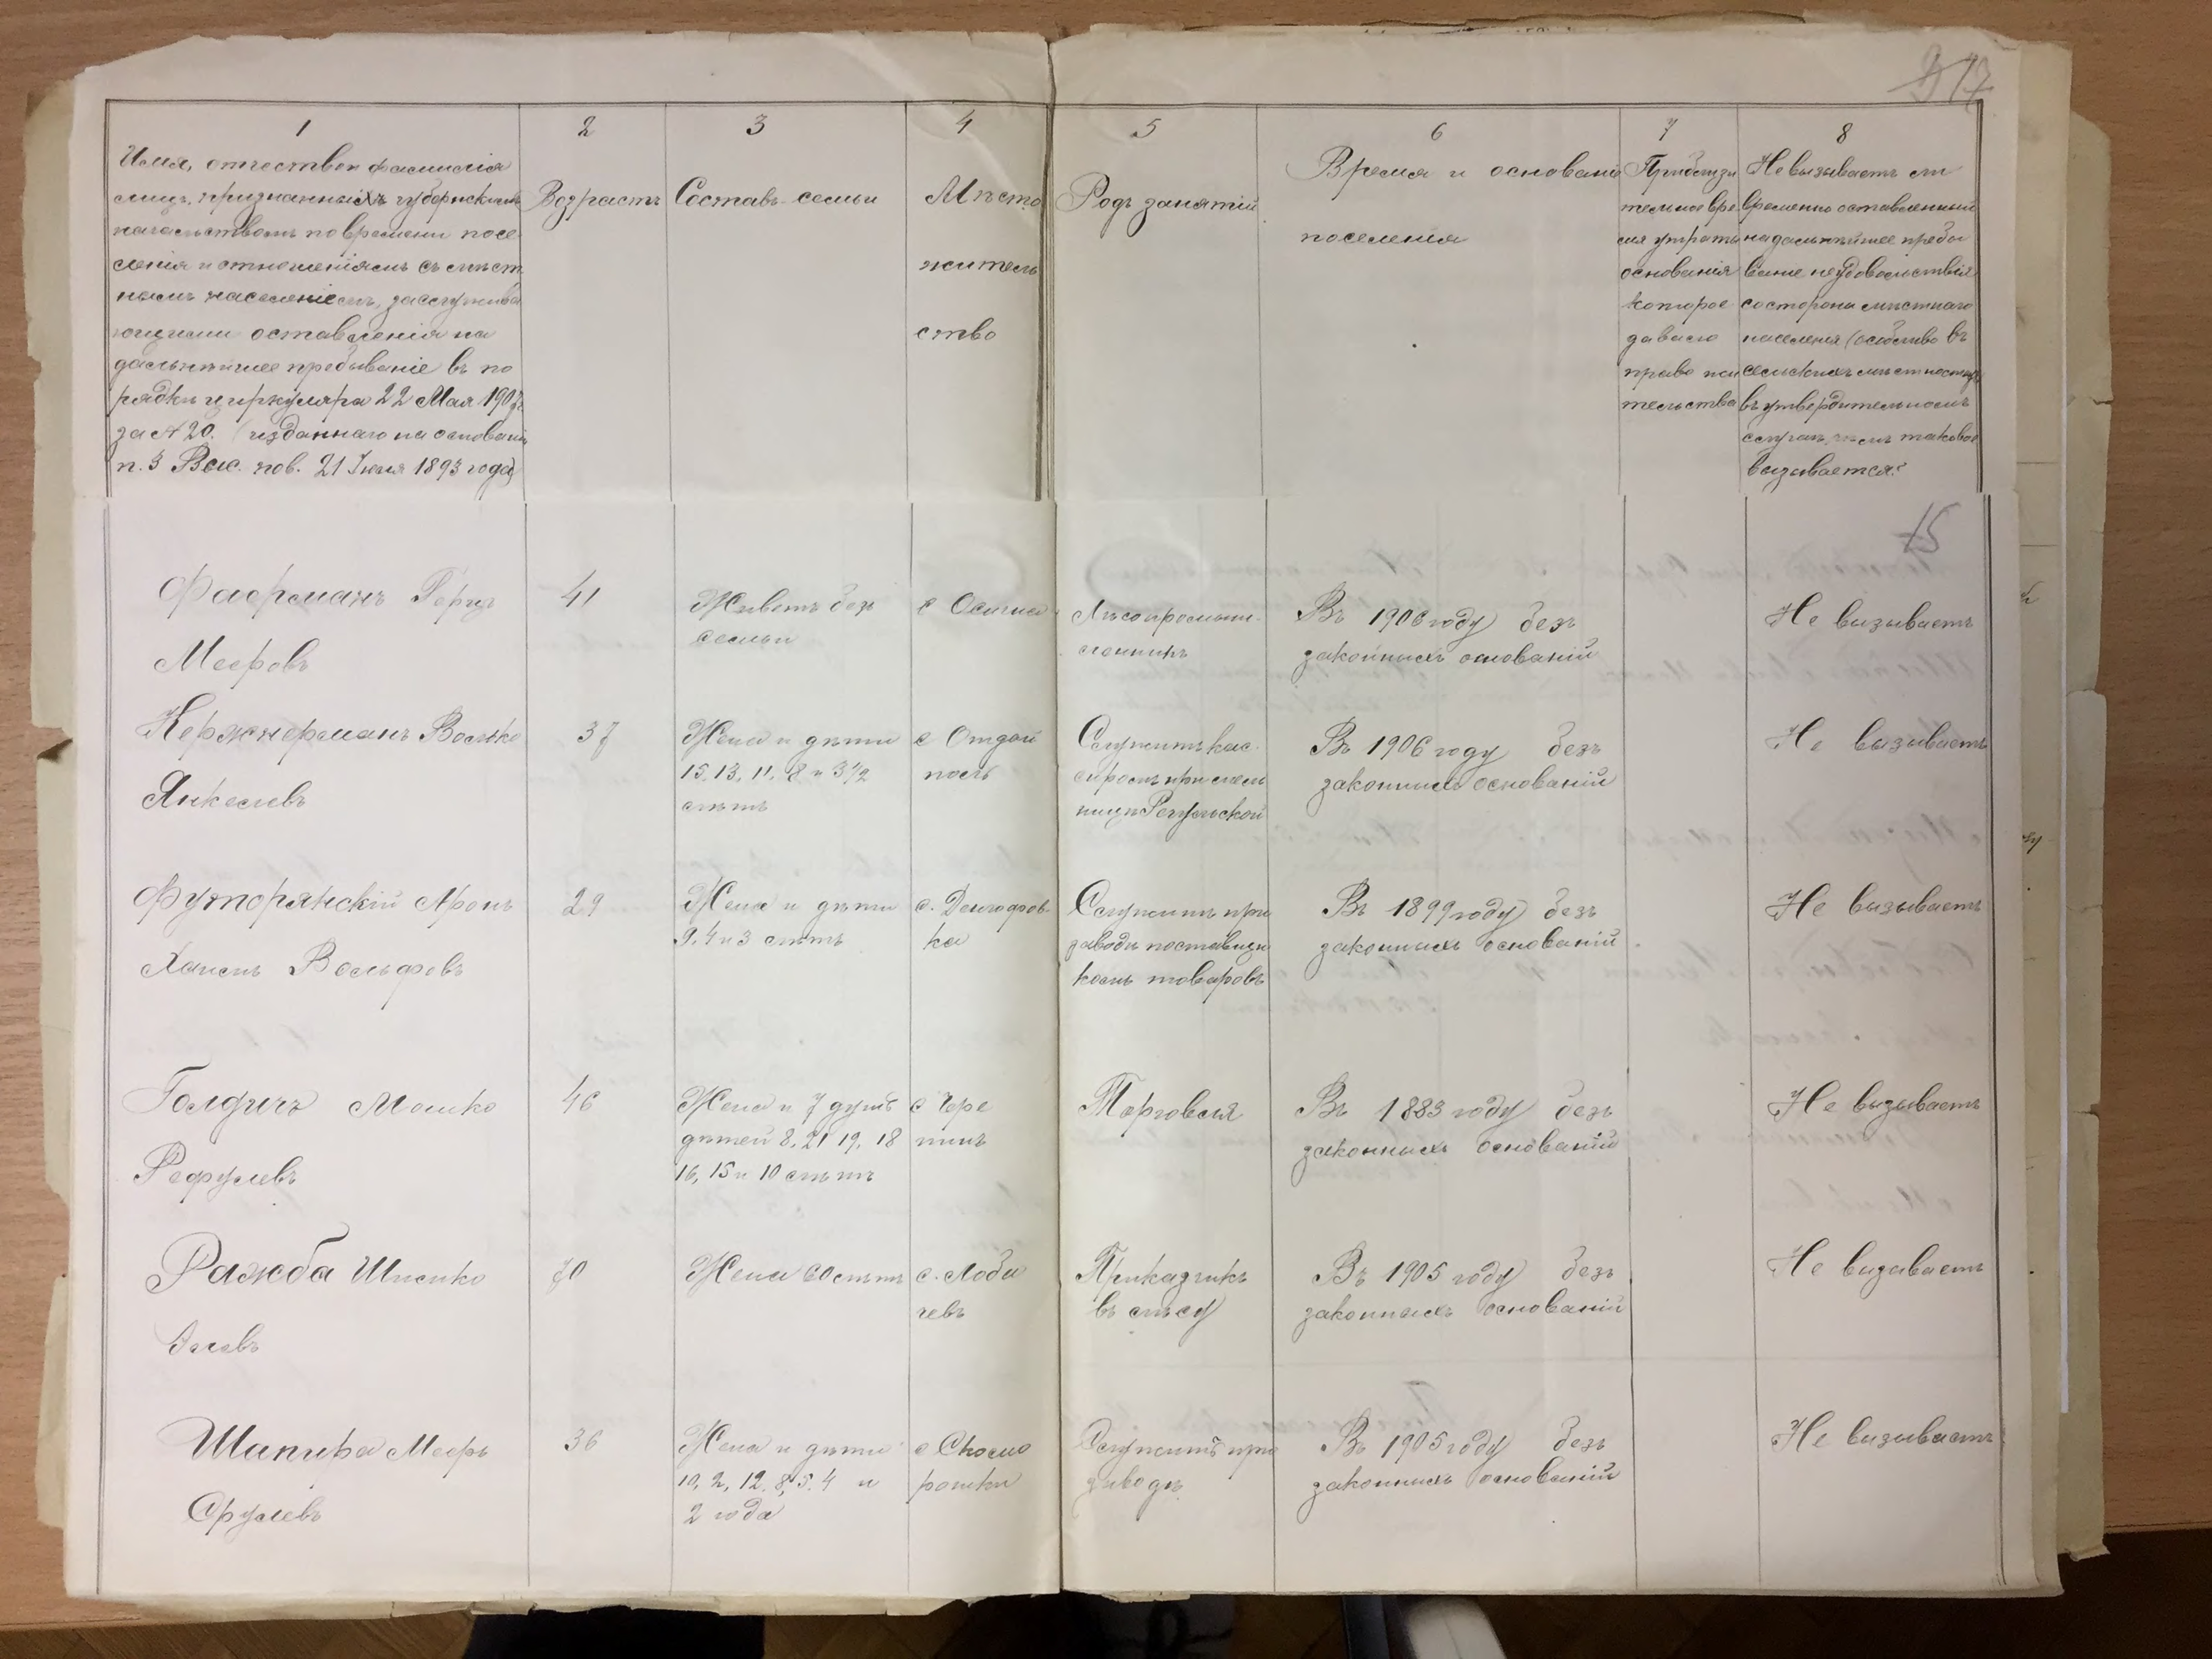 17
1
2
3
4
5
6
7
8
Имя, отчество и фамилія
лицъ, признанныхъ губернскимъ
начальствомъ по времени посе
ленія и отношеніямъ съ мѣст
нымъ населеніемъ, заслужива
ющими оставленія на
дальнѣйшее пребываніе въ по
рядкѣ циркуляра 22 Мая 1907 г.
за № 20. (изданнаго на основаніи
п. 3 Выс. пов. 21 Іюля 1893 года)
Возрастъ
Составъ семьи
Мѣсто
житель
ство
Родъ занятій
Время и основаніе
поселенія
Приблизи
тельное вре
мя утраты
основанія
которое
давало
право жи
тельства
Не вызываетъ ли
временно оставленный
на дальнѣйшее пребы
ваніе неудовольствія
со стороны мѣстнаго
населенія (особенно въ
сельскихъ мѣстностяхъ
въ утвердительномъ
случаѣ, чѣмъ таковое
вызывается?
15
Фаерманъ Герцъ
Мееровъ
41
Живетъ безъ
семьи
с
Лѣсопромыш-
ленникъ
Въ 1906 году безъ
законныхъ основаній
Не вызываетъ
Кержнерманъ Волько
Янкелевъ
37
Жена и дѣти
15. 13, 11, 8 и 3 1/2
лѣтъ
с Отдай
поль
Служитъ кас-
сиромъ при мель
ницѣ
Въ 1906 году безъ
законныхъ основаній
Не вызываетъ
Футорянскій Аронъ
Хаимъ Вольфовъ
29
Жена и дѣти
9. 4 и 3 лѣтъ
с.
ка
Служитъ при
заводѣ поставщи
комъ товаровъ
Въ 1899 году безъ
законныхъ основаній
Не вызываетъ
Голдичъ Мошко
Рефулевъ
46
Жена и 7 душъ
дѣтей 8, 21 19, 18
16, 15 и 10 лѣтъ
с Чере
пинъ
Торговля
Въ 1883 году безъ
законныхъ основаній
Не вызываетъ
Ражба Шимко
70
Жена 60 лѣтъ
с. Лоба
чевъ
Прикащикъ
въ лѣсу
Въ 1905 году безъ
законныхъ основаній
Не вызываетъ
Шапира Мееръ
Срулевъ
36
Жена и дѣти
10, 2, 12. 8, 5. 4 и
2 года
с Скомо
рошки
Служитъ при
заводѣ
Въ 1905 году безъ
законныхъ основаній
Не вызываетъ